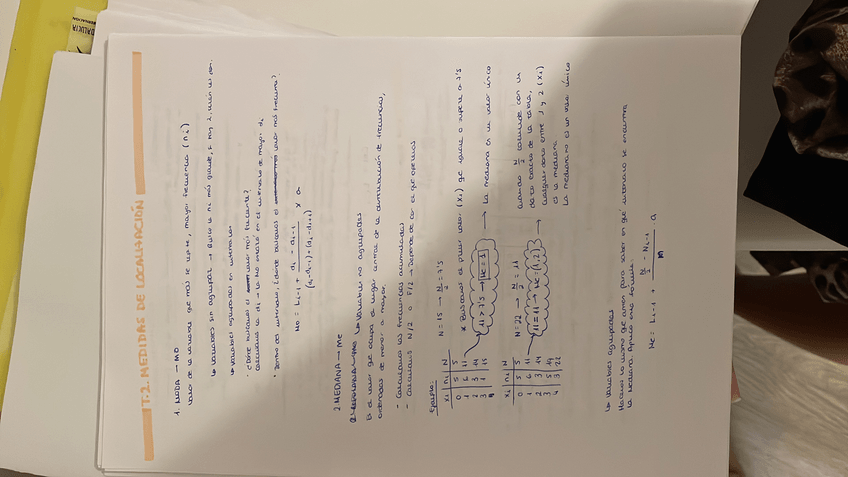 T.2. MEDIDAS DE LOCALIZACIÓN
1. MODA → Mo
Valor de la variable que más se repite, mayor frecuencia (ni)
↳ Variables sin agrupar → Busco la ni más grande, si hay 2, bien
↳ Variables agrupadas en intervalos
· ¿Dónde buscamos el valor más frecuente?
Calculamos la di → la Mo estará en el intervalo de mayor di
· Dentro del intervalo, ¿dónde buscamos el valor más frecuente?
Mo = Li-1 + di - di-1 / (di-di-1)+(di-di+1) × a
2 MEDIANA → Me
↳ Variables no agrupadas
Es el valor que ocupa el lugar central de la distribución de frecuencias,
ordenadas de menor a mayor.
- Calculamos las frecuencias acumuladas
- Calculamos N/2 o F/2 → Depende de con el que operemos
Ejemplo:
xi | ni | N
0 5 5
1 6 11
2 3 14
3 1 15
N = 15 → N/2 = 7'5
* Buscamos el primer valor (xi) que iguale o supere a 7'5
11 > 7'5 → Me = 1
→ La mediana es un valor único
xi | ni | N
0 5 5
1 6 11
2 3 14
3 5 19
4 3 22
N = 22 → N/2 = 11
11 = 11 → Me = (1,2)
→ Cuando N/2 coincide con un
dato exacto de la tabla,
cualquier dato entre 1 y 2 (xi)
es la mediana
La mediana no es un valor único
↳ Variables agrupadas
Hacemos lo mismo que antes para saber en qué intervalo se encuentra
la mediana. Aplico esta fórmula.
Me = Li-1 + N/2 - Ni-1 / ni a